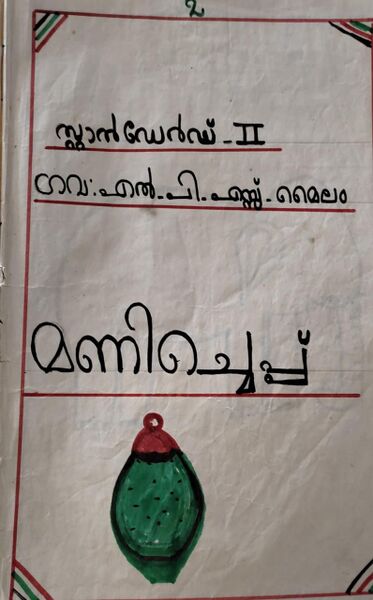 2
സ്റ്റാൻഡേർഡ് - II
ഗവ: എൽ. പി. എസ്സ്. മൈലം
മണിച്ചെപ്പ്